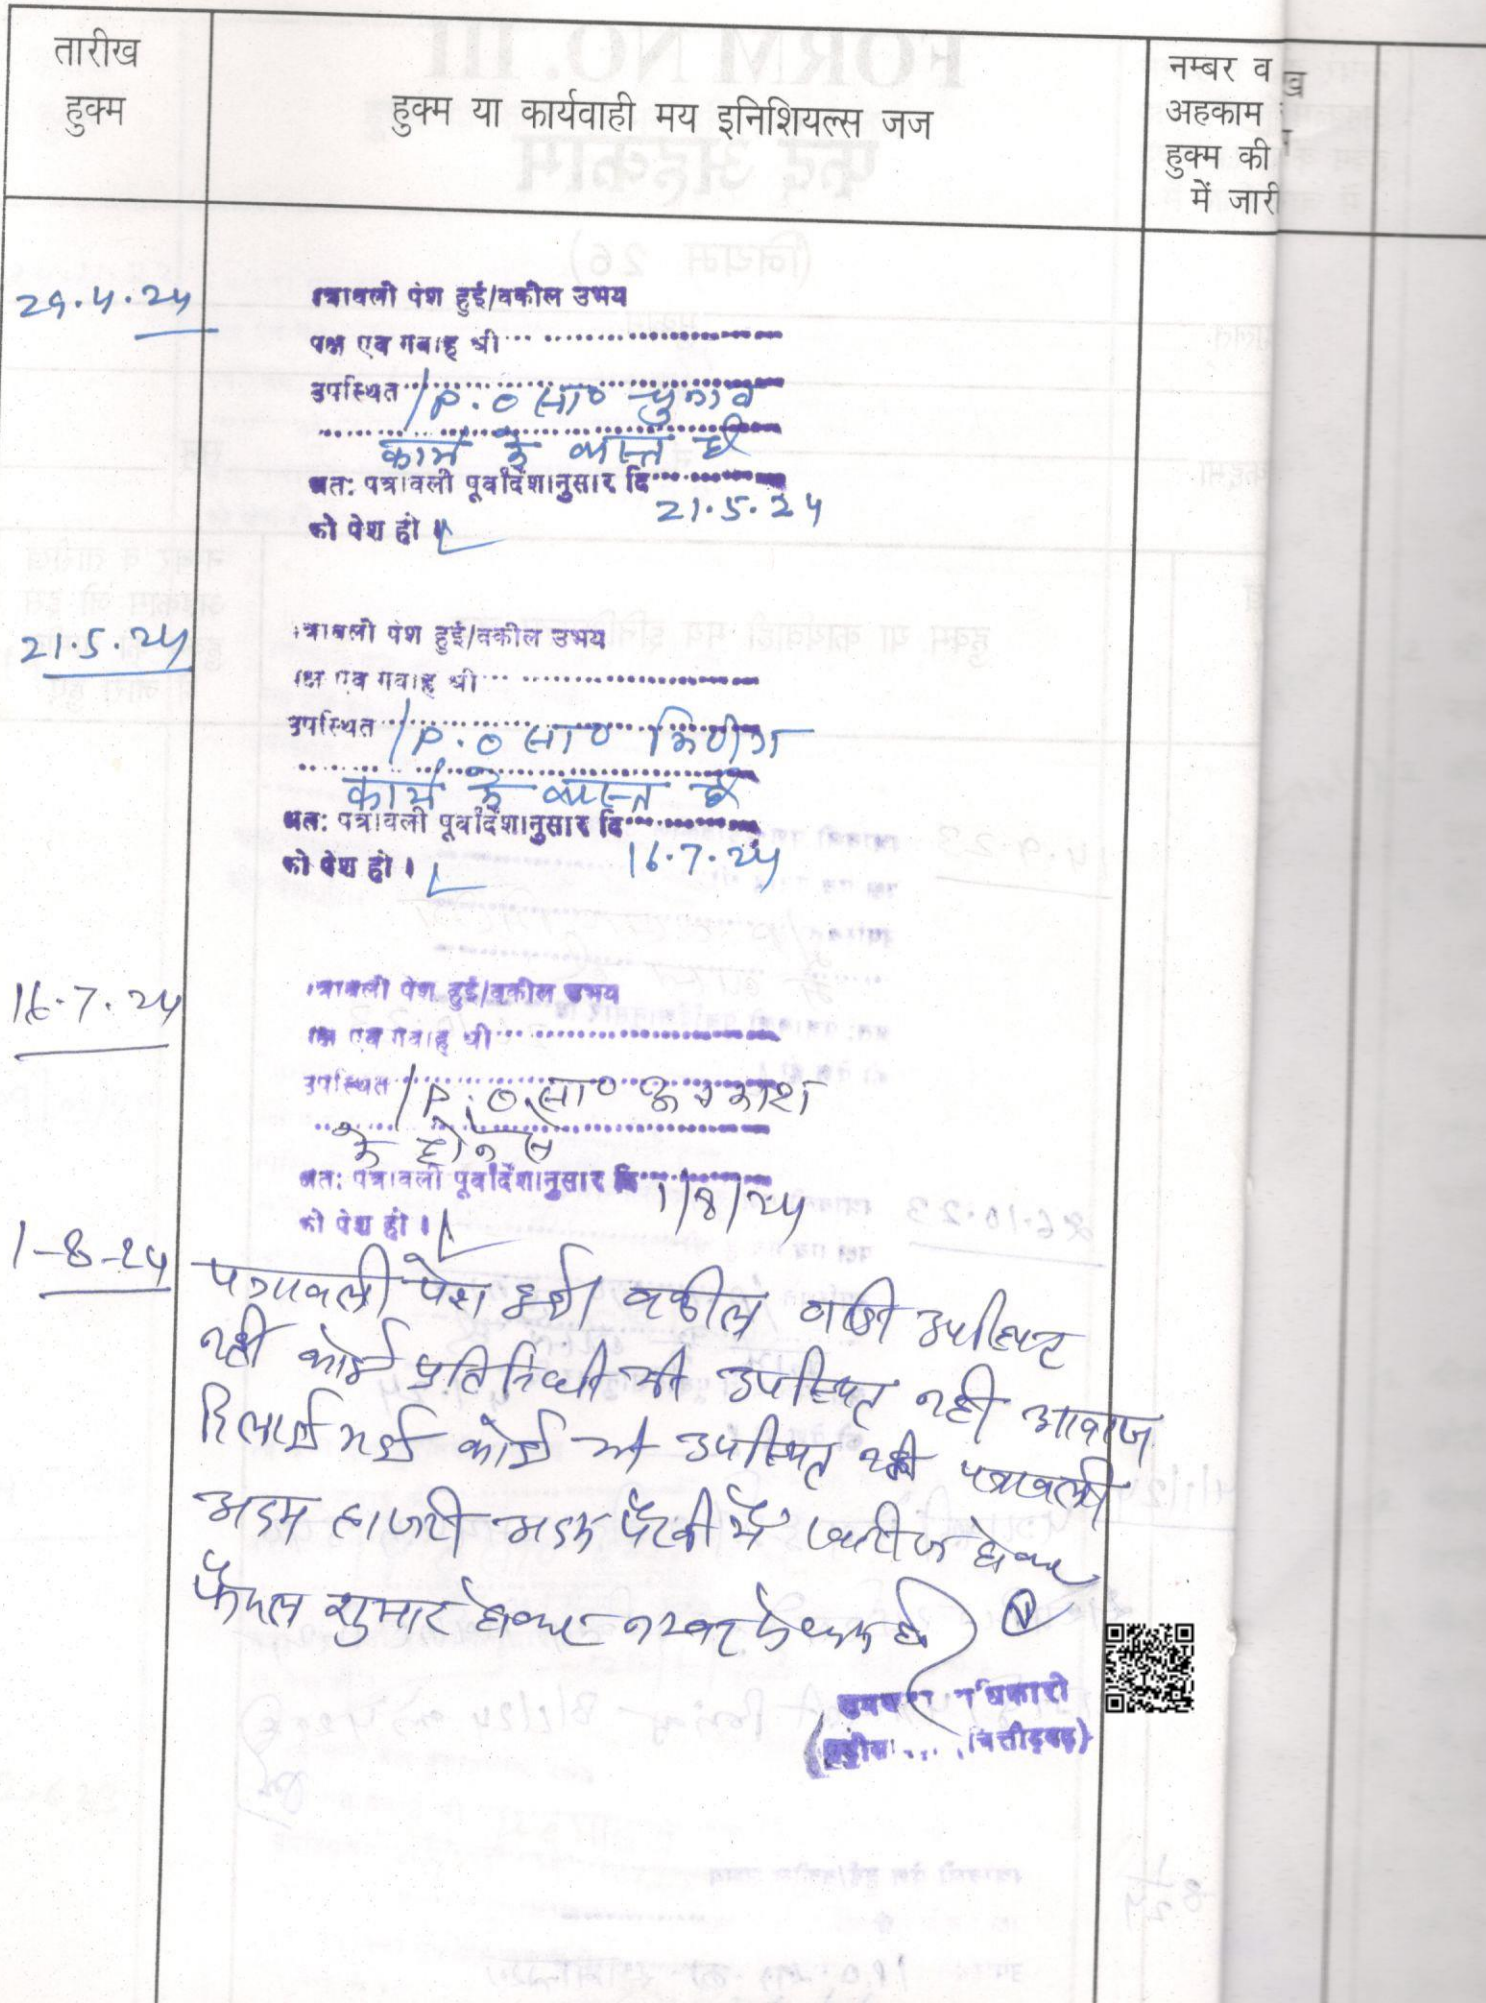 तारीख
हुक्म
हुक्म या कार्यवाही मय इनिशियल्स जज
नम्बर व
अहकाम
हुक्म की
में जारी
29.4.24
पत्रावली पेश हुई/वकील उभय
पक्ष एवं गवाह श्री
उपस्थित / P.O सा० चुनाव
कार्य में व्यस्त है
अत: पत्रावली पूर्वादेशानुसार दि
21.5.24
को पेश हो ।
21.5.24
पत्रावली पेश हुई/वकील उभय
पक्ष एवं गवाह श्री
उपस्थित / P.O सा०
कार्य में व्यस्त है
अत: पत्रावली पूर्वादेशानुसार दि
को पेश हो । 16.7.24
16.7.24
पत्रावली पेश हुई/वकील उभय
पक्ष एवं गवाह श्री
उपस्थित / P.O. सा० अवकाश
पे होने से
अत: पत्रावली पूर्वादेशानुसार दि 1/8/24
को पेश हो ।
1-8-24
पत्रावली पेश हुई। वकील वादी उपस्थित
नही कोई प्रतिनिधी भी उपस्थित नही आवाज
दिलाई गई कोई भी उपस्थित नही पत्रावली
अदम हाजरी अदम पैरवी में खारीज होकर
फैसल शुमार होकर नम्बर से कम हो
उपखण्ड अधिकारी
(चित्तौड़गढ़)